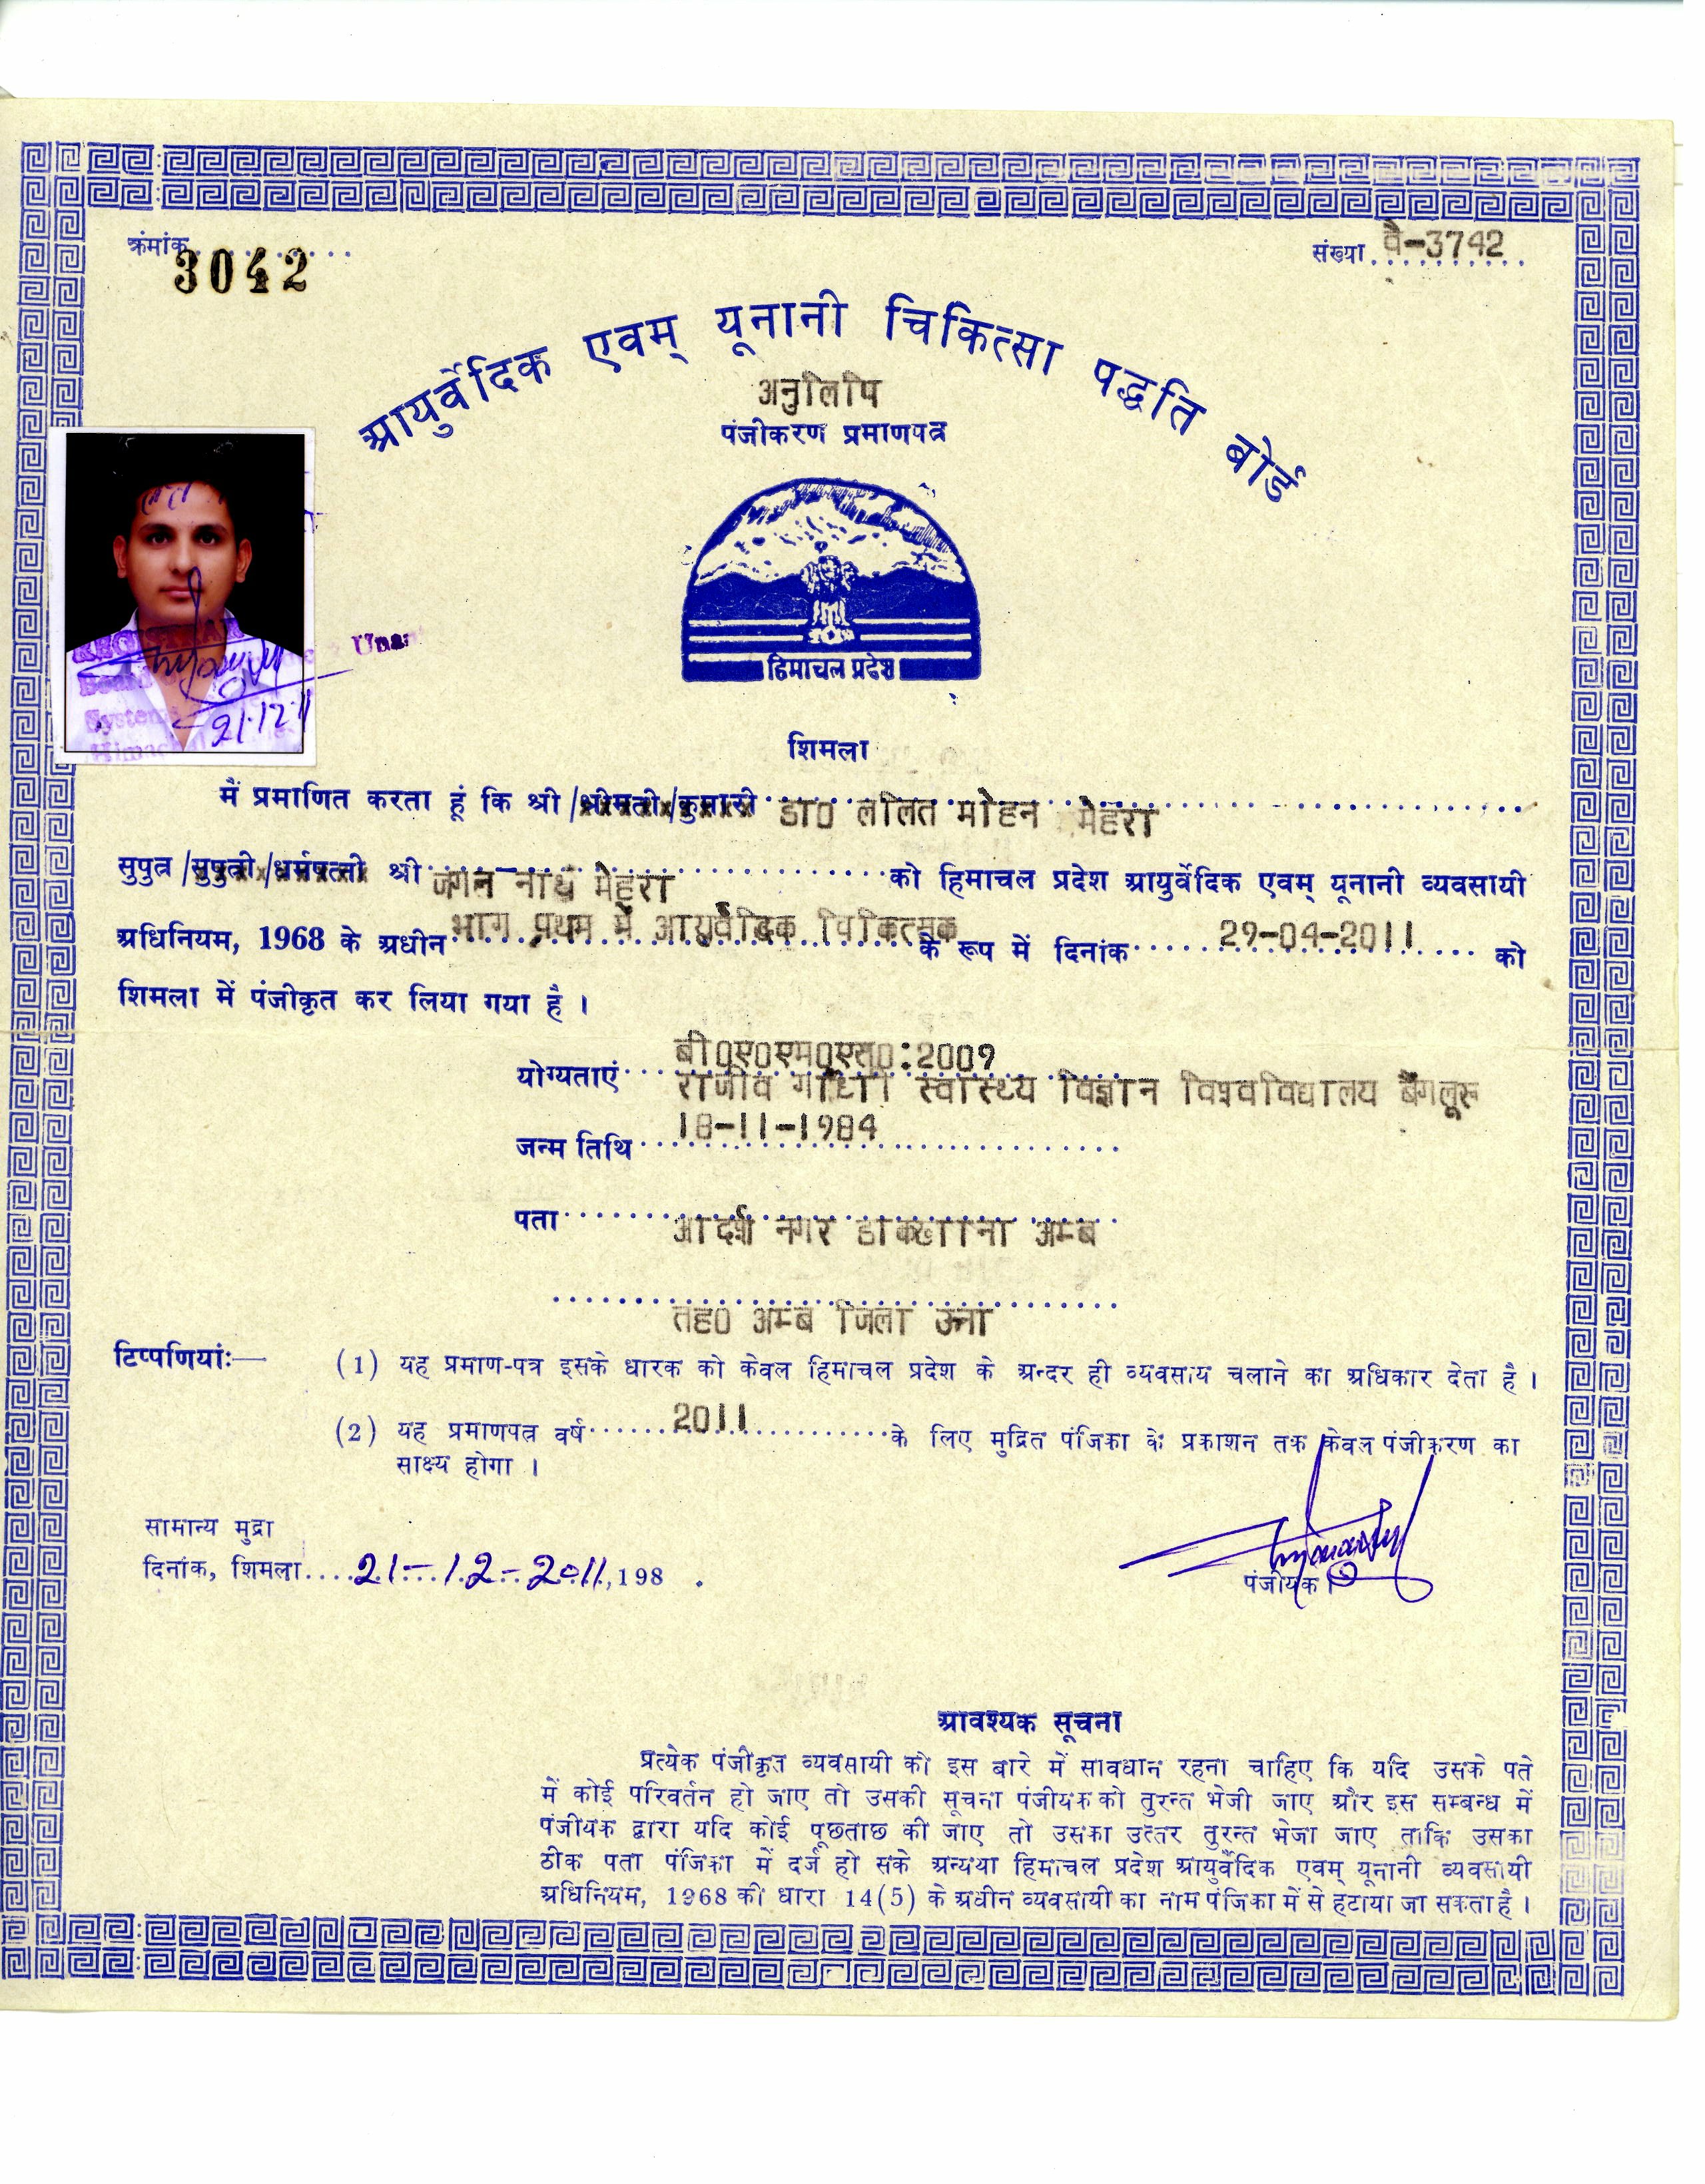 क्रंमांक..........
3042
संख्या..........
वै-3742
आयुर्वेदिक एवम् यूनानी चिकित्सा पद्धति बोर्ड
अनुलिपि
पंजीकरण प्रमाणपत्र
हिमाचल प्रदेश
शिमला
मैं प्रमाणित करता हूं कि श्री/श्रीमती/कुमारी डा0 ललित मोहन मेहरा
सुपुत्र/सुपुत्री/धर्मपत्नी श्री जगन नाथ मेहरा को हिमाचल प्रदेश आयुर्वेदिक एवम् यूनानी व्यवसायी
अधिनियम, 1968 के अधीन भाग प्रथम में आयुर्वेदिक चिकित्सक के रूप में दिनांक 29-04-2011 को
शिमला में पंजीकृत कर लिया गया है ।
बी0ए0एम0एस0:2009
योग्यताएं राजीव गांधी स्वास्थ्य विज्ञान विश्वविद्यालय बैंगलूरू
जन्म तिथि 18-11-1984
पता आदर्श नगर डाकखाना अम्ब
तह0 अम्ब जिला ऊना
टिप्पणियां:— (1) यह प्रमाण-पत्र इसके धारक को केवल हिमाचल प्रदेश के अन्दर ही व्यवसाय चलाने का अधिकार देता है ।
(2) यह प्रमाणपत्र वर्ष 2011 के लिए मुद्रित पंजिका के प्रकाशन तक केवल पंजीकरण का
साक्ष्य होगा ।
सामान्य मुद्रा
दिनांक, शिमला....21-12-2011,198 .
पंजीयक ।
21-12-11
आवश्यक सूचना
प्रत्येक पंजीकृत व्यवसायी को इस बारे में सावधान रहना चाहिए कि यदि उसके पते
में कोई परिवर्तन हो जाए तो उसकी सूचना पंजीयक को तुरन्त भेजी जाए और इस सम्बन्ध में
पंजीयक द्वारा यदि कोई पूछताछ की जाए तो उसका उत्तर तुरन्त भेजा जाए ताकि उसका
ठीक पता पंजिका में दर्ज हो सके अन्यथा हिमाचल प्रदेश आयुर्वैदिक एवम् यूनानी व्यवसायी
अधिनियम, 1968 की धारा 14(5) के अधीन व्यवसायी का नाम पंजिका में से हटाया जा सकता है ।